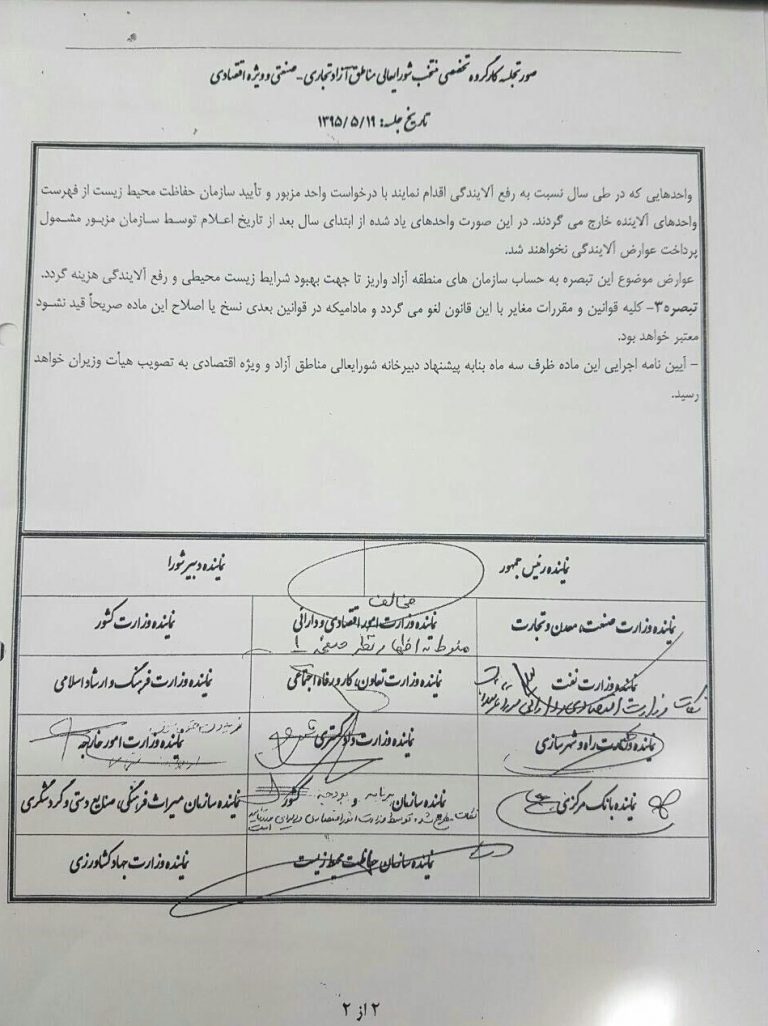 صورتجلسه کارگروه تخصصی منتخب شورایعالی مناطق آزاد تجاری - صنعتی و ویژه اقتصادی
تاریخ جلسه: ۱۳۹۵/۵/۱۹
واحدهایی که در طی سال نسبت به رفع آلایندگی اقدام نمایند با درخواست واحد مزبور و تأیید سازمان حفاظت محیط زیست از فهرست
واحدهای آلاینده خارج می گردند. در این صورت واحدهای یاد شده از ابتدای سال بعد از تاریخ اعلام توسط سازمان مزبور مشمول
پرداخت عوارض آلایندگی نخواهند شد.
عوارض موضوع این تبصره به حساب سازمان های منطقه آزاد واریز تا جهت بهبود شرایط زیست محیطی و رفع آلایندگی هزینه گردد.
تبصره۳- کلیه قوانین و مقررات مغایر با این قانون لغو می گردد و مادامیکه در قوانین بعدی نسخ یا اصلاح این ماده صریحاً قید نشود
معتبر خواهد بود.
- آیین نامه اجرایی این ماده ظرف سه ماه بنابه پیشنهاد دبیرخانه شورایعالی مناطق آزاد و ویژه اقتصادی به تصویب هیأت وزیران خواهد
رسید.
نماینده رئیس جمهور
نماینده دبیر شورا
مخالف
نماینده وزارت صنعت، معدن و تجارت
نماینده وزارت امور اقتصادی و دارائی
نماینده وزارت کشور
منوط به اظهار نظر صفحه ۱
نماینده وزارت نفت
نماینده وزارت تعاون، کار و رفاه اجتماعی
نماینده وزارت فرهنگ و ارشاد اسلامی
نکات وزارت اقتصادی و دارائی
نماینده وزارت راه و شهرسازی
نماینده وزارت دادگستری
نماینده وزارت امور خارجه
نماینده بانک مرکزی
نماینده سازمان برنامه و بودجه کشور
نماینده سازمان میراث فرهنگی، صنایع دستی و گردشگری
نکات مطرح شده توسط وزارت امور اقتصادی و دارایی مورد تایید است
نماینده سازمان حفاظت محیط زیست
نماینده وزارت جهاد کشاورزی
۲ از ۲